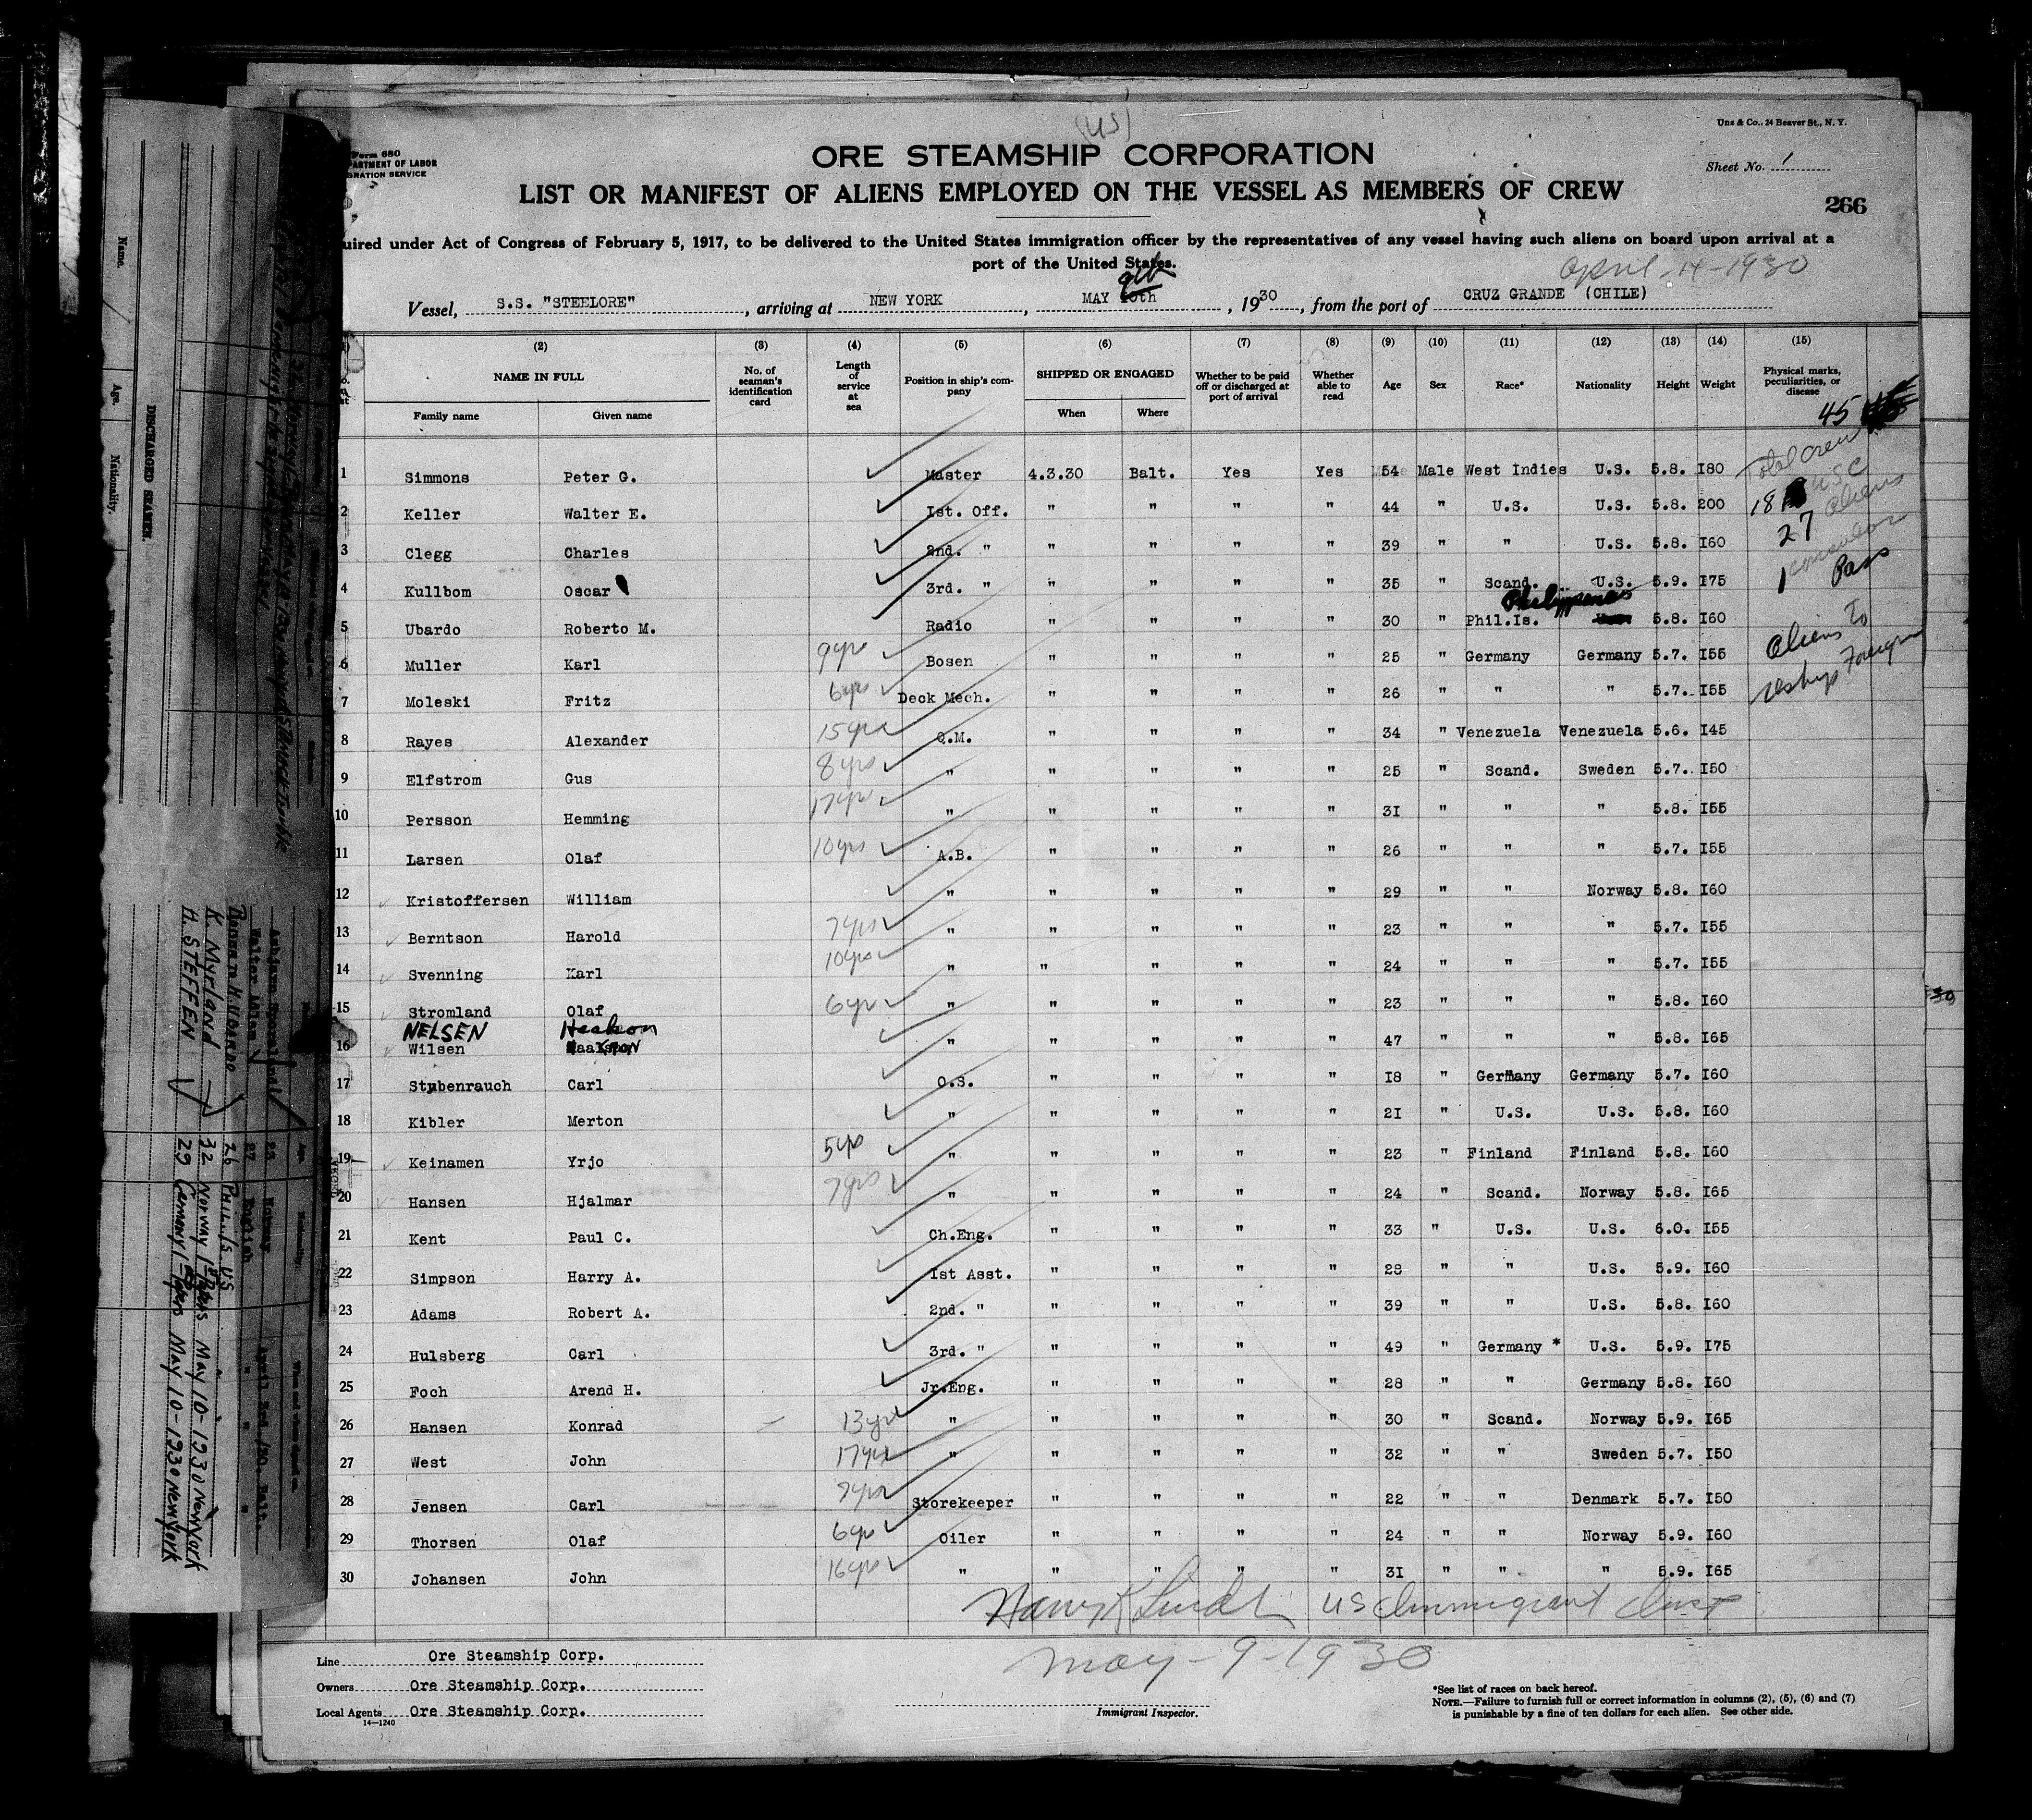 (US)
Unz & Co., 24 Beaver St., N. Y.
Form 680
ARTMENT OF LABOR
GRATION SERVICE
ORE STEAMSHIP CORPORATION
Sheet No. 1
LIST OR MANIFEST OF ALIENS EMPLOYED ON THE VESSEL AS MEMBERS OF CREW
266
uired under Act of Congress of February 5, 1917, to be delivered to the United States immigration officer by the representatives of any vessel having such aliens on board upon arrival at a
port of the United States.
April-14-1930
9th
Vessel, S.S. "STEELORE", arriving at NEW YORK, MAY 10th, 1930, from the port of CRUZ GRANDE (CHILE)
(2) (3) (4) (5) (6) (7) (8) (9) (10) (11) (12) (13) (14) (15)
NAME IN FULL Family name Given name
No. of seaman's identification card
Length of service at sea
Position in ship's company
SHIPPED OR ENGAGED When Where
Whether to be paid off or discharged at port of arrival
Whether able to read
Age Sex Race* Nationality Height Weight
Physical marks, peculiarities, or disease
45
Total Crew
18 USC
27 Aliens
1 consular Pass
Aliens To
reship Foreign
1 Simmons Peter G. Master 4.3.30 Balt. Yes Yes 54 Male West Indies U.S. 5.8. I80
2 Keller Walter E. Ist. Off. " " " " 44 " U.S. U.S. 5.8. 200
3 Clegg Charles 2nd. " " " " " 39 " " U.S. 5.8. I60
4 Kullbom Oscar 3rd. " " " " " 35 " Scand. U.S. 5.9. I75
Philippines
5 Ubardo Roberto M. Radio " " " " 30 " Phil.Is. 5.8. I60
6 Muller Karl 9yrs Bosen " " " " 25 " Germany Germany 5.7. I55
7 Moleski Fritz 6yrs Deck Mech. " " " " 26 " " " 5.7. I55
8 Rayes Alexander 15yrs Q.M. " " " " 34 " Venezuela Venezuela 5.6. I45
9 Elfstrom Gus 8yrs " " " " " 25 " Scand. Sweden 5.7. I50
10 Persson Hemming 17yrs " " " " " 3I " " " 5.8. I55
11 Larsen Olaf 10yrs A.B. " " " " 26 " " " 5.7. I55
12 Kristoffersen William " " " " " 29 " " Norway 5.8. I60
13 Berntson Harold 7yrs " " " " " 23 " " " 5.7. I55
14 Svenning Karl 10yrs " " " " " 24 " " " 5.7. I55
15 Stromland Olaf 6yrs " " " " " 23 " " " 5.8. I60
NELSEN Haakon
16 Wilsen " " " " " 47 " " " 5.8. I65
17 Stubenrauch Carl O.S. " " " " I8 " Germany Germany 5.7. I60
18 Kibler Merton " " " " " 2I " U.S. U.S. 5.8. I60
19 Keinamen Yrjo 5yrs " " " " " 23 " Finland Finland 5.8. I60
20 Hansen Hjalmar 7yrs " " " " " 24 " Scand. Norway 5.8. I65
21 Kent Paul C. Ch.Eng. " " " " 33 " U.S. U.S. 6.0. I55
22 Simpson Harry A. 1st Asst. " " " " 28 " " U.S. 5.9. I60
23 Adams Robert A. 2nd. " " " " " 39 " " U.S. 5.8. I60
24 Hulsberg Carl 3rd. " " " " " 49 " Germany * U.S. 5.9. I75
25 Foch Arend H. Jr.Eng. " " " " 28 " " Germany 5.8. I60
26 Hansen Konrad 13yrs " " " " " 30 " Scand. Norway 5.9. I65
27 West John 17yrs " " " " " 32 " " Sweden 5.7. I50
28 Jensen Carl 7yrs Storekeeper " " " " 22 " " Denmark 5.7. I50
29 Thorsen Olaf 6yrs Oiler " " " " 24 " " Norway 5.9. I60
30 Johansen John 16yrs " " " " " 3I " " " 5.9. I65
US Immigrant Insp
May-9-1930
Line Ore Steamship Corp.
Owners Ore Steamship Corp.
Local Agents Ore Steamship Corp.
14—1240
Immigrant Inspector.
*See list of races on back hereof.
NOTE.—Failure to furnish full or correct information in columns (2), (5), (6) and (7)
is punishable by a fine of ten dollars for each alien. See other side.
DISCHARGED SEAMEN.
Name. Age. Nationality.
K. Myrland 32 Norway May 10-1930 New York
H. STEFFEN 29 Germany May 10-1930 New York